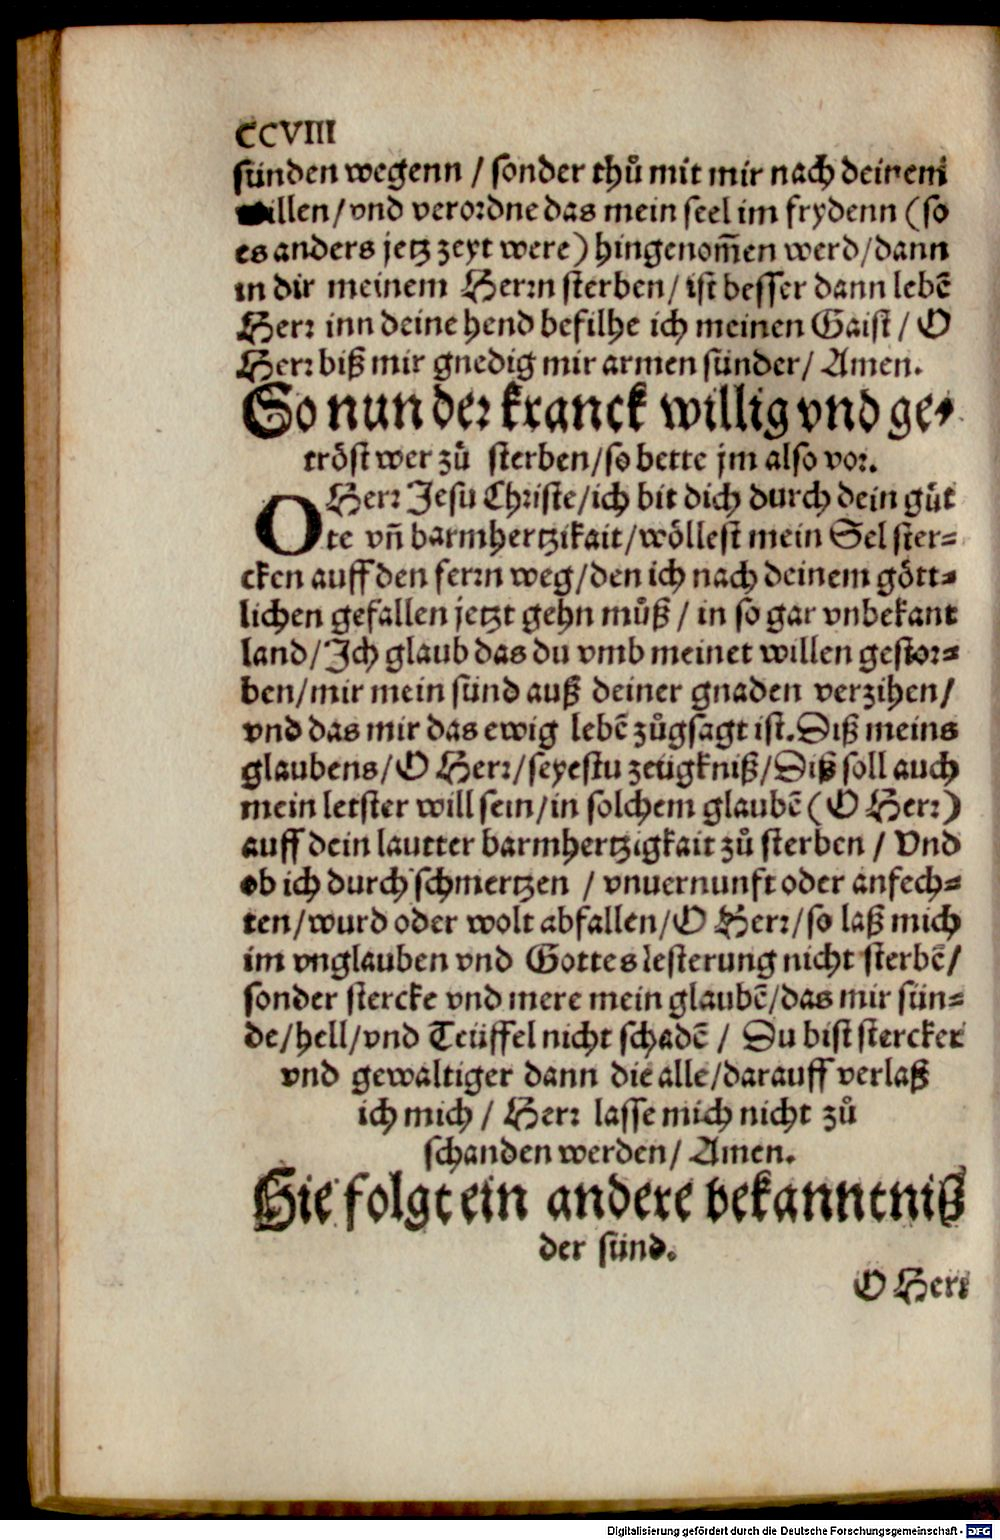 CCVIII
sünden wegenn / sonder thů mit mir nach deinem
willen/vnd verordne das mein seel im frydenn (so
es anders jetz zeyt were) hingenom̃en werd/dann
in dir meinem Herrn sterben/ ist besser dann lebẽ
Herr inn deine hend befilhe ich meinen Gaist / O
Herr biß mir gnedig mir armen sünder/ Amen.
So nun der kranck willig vnd ge-
tröst wer zů sterben/so bette jm also vor.
O Herr Jesu Christe/ich bit dich durch dein gůt
te vñ barmhertzikait/wöllest mein Sel ster=
cken auff den ferrn weg/den ich nach deinem gött=
lichen gefallen jetzt gehn můß / in so gar vnbekant
land/Jch glaub das du vmb meinet willen gestor=
ben/mir mein sünd auß deiner gnaden verzihen/
vnd das mir das ewig lebẽ zůgsagt ist.Diß meins
glaubens/O Herr/seyestu zeügkniß/Diß soll auch
mein letster will sein/in solchem glaubẽ (O Herr)
auff dein lautter barmhertzigkait zů sterben / Vnd
ob ich durch schmertzen / vnuernunft oder anfech=
ten/wurd oder wolt abfallen/O Herr/so laß mich
im vnglauben vnd Gottes lesterung nicht sterbẽ/
sonder stercke vnd mere mein glaubẽ/das mir sün=
de/hell/vnd Teüffel nicht schadẽ / Du bist stercker
vnd gewaltiger dann die alle/darauff verlaß
ich mich / Herr lasse mich nicht zů
schanden werden/ Amen.
Hie folgt ein andere bekanntniß
der sünd.
O Herr
Digitalisierung gefördert durch die Deutsche Forschungsgemeinschaft - DFG